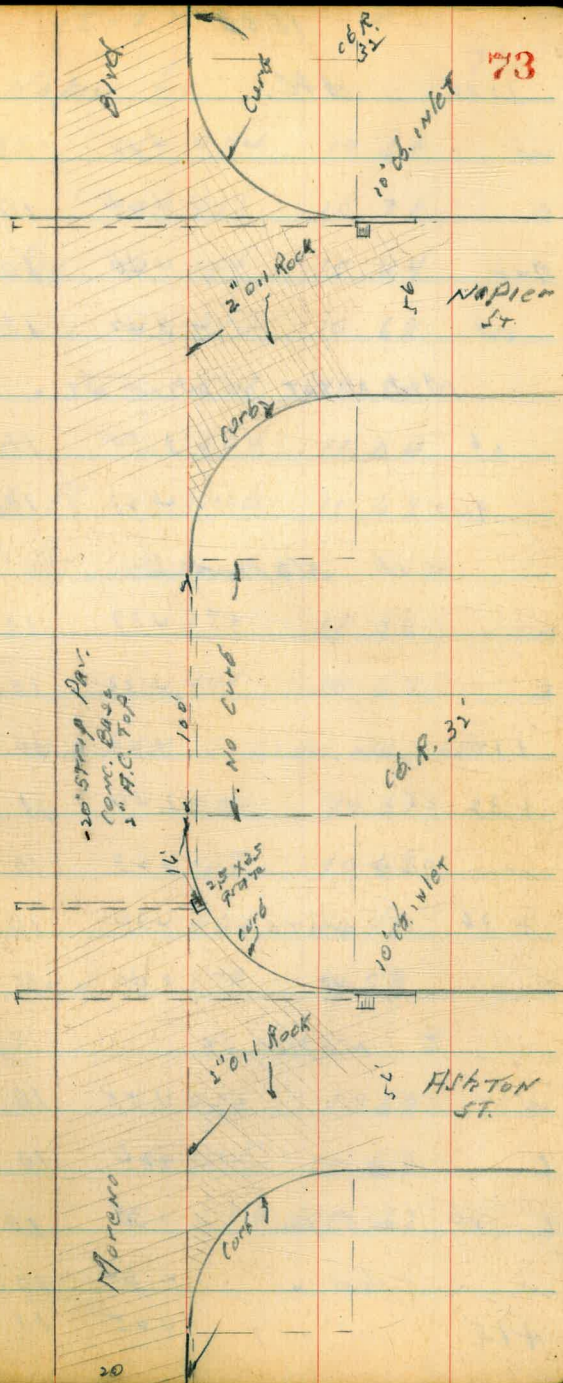 73
Blvd.
Curb
Cb. R.
32'
10' Cb. INLET
2" Oil Rock
56'
Napier
St.
Curb
NO Curb
100'
20' Strip Pav.
Conc. Base
2" A.C. Top
Cb. R. 32'
16'
2.5 x 2.5
grate
curb
10' Cb. Inlet
2" Oil Rock
56'
AShTON
ST.
Moreno
Curb
20